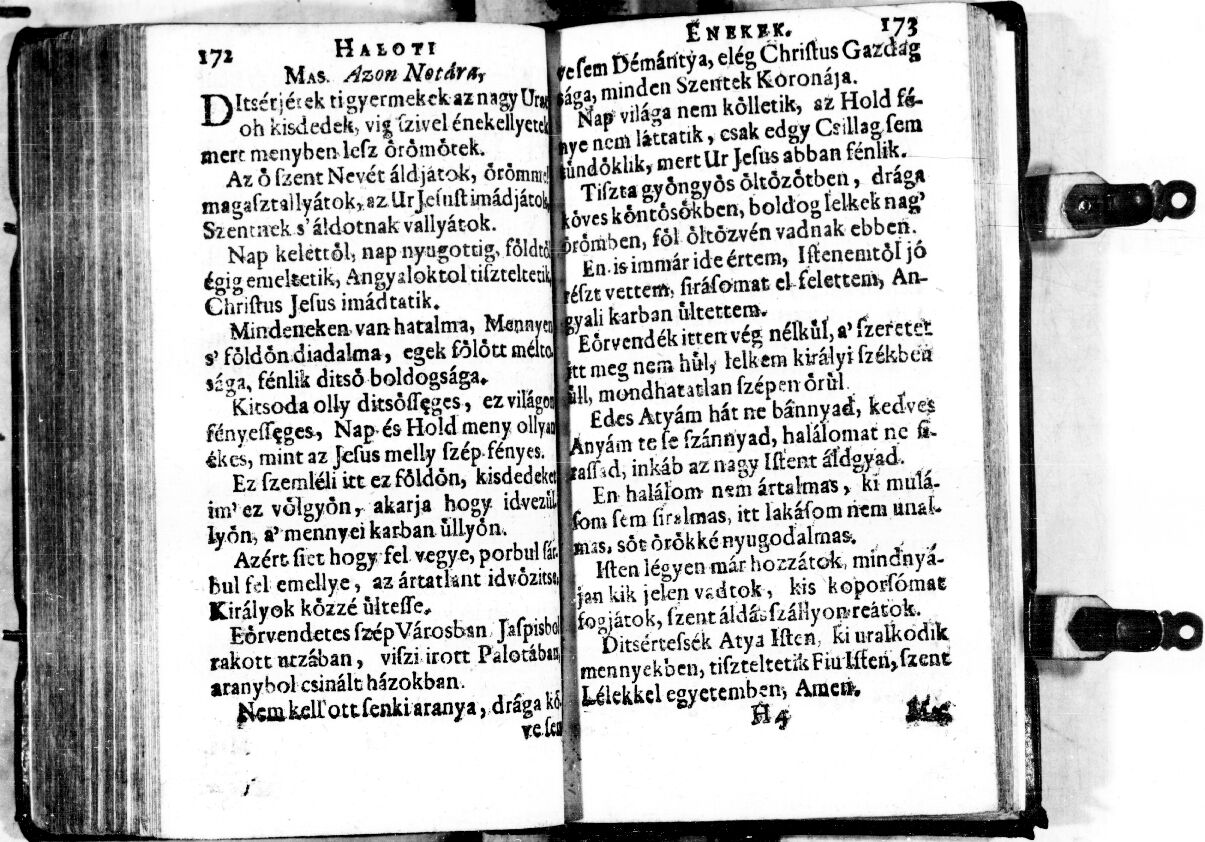 172 HALOTI
MAS. Azon Notára,
DItsérjétek ti gyermekek az nagy Urat
oh kisdedek, vig ſzivel énekellyetek
mert menyben leſz o̊ro̊mo̊tek.
Az o̊ ſzent Nevét áldjátok, o̊ro̊mmel
magaſztallyátok, az Ur Jeſuſt imádjátok,
Szentnek s' áldotnak vallyátok.
Nap keletto̊l, nap nyugottig, fo̊ldto̊l
égig emeltetik, Angyaloktol tiſzteltetik
Chriſtus Jeſus imádtatik.
Mindeneken van hatalma, Mennyen
s' fo̊ldo̊n diadalma, egek fo̊lo̊tt mélto-
sága, fénlik ditso̊ boldogsága.
Kitsoda olly ditso̊ſſęges, ez világon
fényeſſęges, Nap és Hold meny ollyan
ékes, mint az Jeſus melly ſzép fényes.
Ez ſzemléli itt ez fo̊ldo̊n, kisdedeket
im' ez vo̊lgyo̊n, akarja hogy idvezu̇l-
lyo̊n, a' mennyei karban u̇llyo̊n.
Azért ſiet hogy fel vegye, porbul ſár-
bul fel emellye, az ártatlant idvo̊zitse,
Királyok ko̊zzé u̇lteſſe.
Eo̊rvendetes ſzép Városban Jaſpisbol
rakott utzában, viſzi irott Palotában,
aranybol csinált házokban.
Nem kell ott ſenki aranya, drága ko̊-
ve ſem
ENEKEK. 173
ve ſem Démántya, elég Chriſtus Gazdag
sága, minden Szentek Koronája.
Nap világa nem ko̊lletik, az Hold fé-
nye nem láttatik, csak edgy Csillag ſem
tu̇ndo̊klik, mert Ur Jeſus abban fénlik.
Tiſzta gyo̊ngyo̊s o̊lto̊zo̊tben, drága
ko̊ves ko̊nto̊so̊kben, boldog lelkek nag'
o̊ro̊mben, fo̊l o̊lto̊zvén vadnak ebben.
En is immár ide értem, Iſtenemto̊l jó
réſzt vettem, ſiráſomat el felettem, An-
gyali karban u̇ltettem.
Eo̊rvendék itten vég nélku̇l, a' ſzeretet
itt meg nem hu̇l, lelkem királyi ſzékben
u̇ll, mondhatatlan ſzépen o̊ru̇l.
Edes Atyám hát ne bánnyad, kedves
Anyám te ſe ſzánnyad, halálomat ne ſi-
raſſad, inkáb az nagy Iſtent áldgyad.
En halálom nem ártalmas, ki mulá-
ſom ſem ſiralmas, itt lakáſom nem unal-
mas, so̊t o̊ro̊kké nyugodalmas.
Iſten légyen már hozzátok, mindnyá-
jan kik jelen vadtok, kis koporſómat
fogjátok, ſzent áldás ſzállyon reátok.
Ditsérteſsék Atya Iſten, ki uralkodik
mennyekben, tiſzteltetik Fiu Iſten, ſzent
Lélekkel egyetemben, Amen.
H4